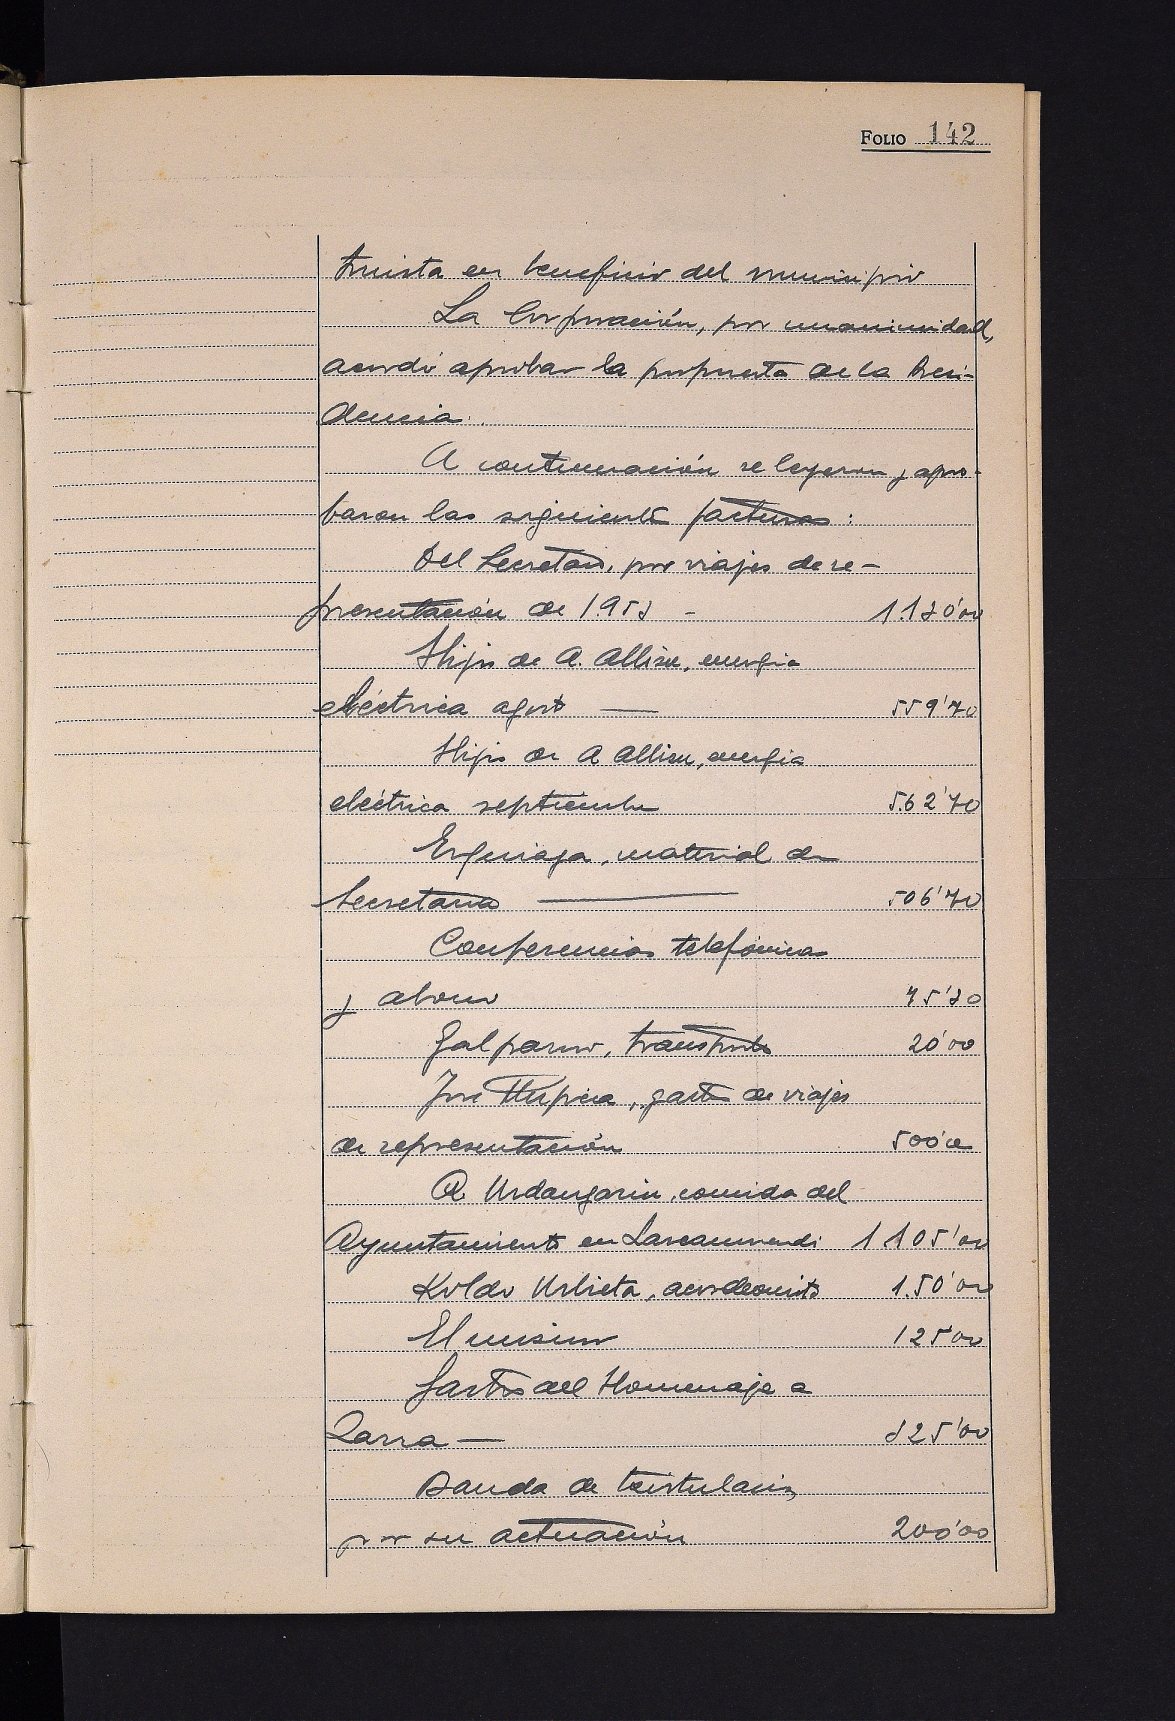 FOLIO 142
turista en beneficio del municipio
La Corporación, por unanimidad,
acordó aprobar la propuesta de la Presi-
dencia.
A continuación se leyeron y apro-
baron las siguientes facturas:
Del Secretario, por viajes de re-
presentación de 1.953 - 1.130'00
Hijos de A. Allisu, energia
eléctrica agosto — 559'70
Hijos de A Allisu, energia
eléctrica septiembre 562'70
Erguiaga, material de
Secretaria — 506'70
Conferencias telefónicas
y abono 75'30
Galparsoro, transporte 20'00
José, gastos de viajes
de representación 500'00
R Urdangarin, comida del
Ayuntamiento en Larcamendi 1.105'00
Koldo Urbieta, acordeonista 150'00
El mismo 125'00
Gastos del Homenaje a
Zarra — 325'00
Banda de txistularis,
por su actuación 200'00